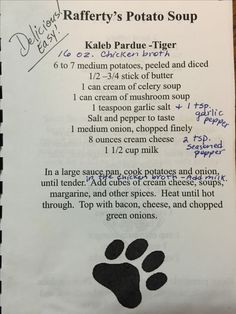 Rafferty's Potato Soup
Delicious
Easy!
Kaleb Pardue -Tiger
16 oz. Chicken broth
6 to 7 medium potatoes, peeled and diced
1/2 –3/4 stick of butter
1 can of celery soup
1 can of mushroom soup
1 teaspoon garlic salt + 1 tsp. garlic pepper
Salt and pepper to taste
1 medium onion, chopped finely
8 ounces cream cheese 2 tsp. seasoned pepper
1 1/2 cup milk
In a large sauce pan, cook potatoes and onion,
in the chicken broth - Add milk.
until tender. Add cubes of cream cheese, soups,
margarine, and other spices. Heat until hot
through. Top with bacon, cheese, and chopped
green onions.